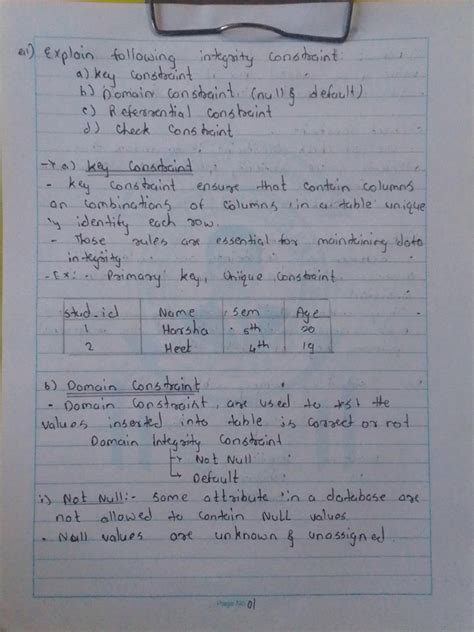 Q1) Explain following integrity constraint:
a) key constraint
b) Domain constraint (null & default)
c) Referential constraint
d) Check constraint
→ a) key constraint
- key constraint ensure that contain columns
on combinations of columns in a table unique
ly identify each row.
- Those rules are essential for maintaining data
integrity
- Ex: Primary key, Unique constraint
stud_id Name sem Age
1 Harsha 5th 20
2 Heet 4th 19
b) Domain Constraint
- Domain constraint, are used to tst the
values inserted into table is correct or not
Domain Integrity Constraint
→ Not Null
→ Default
i) Not Null:- some attribute in a database are
not allowed to contain NULL values
- Null values are unknown & unassigned.
Page No 01